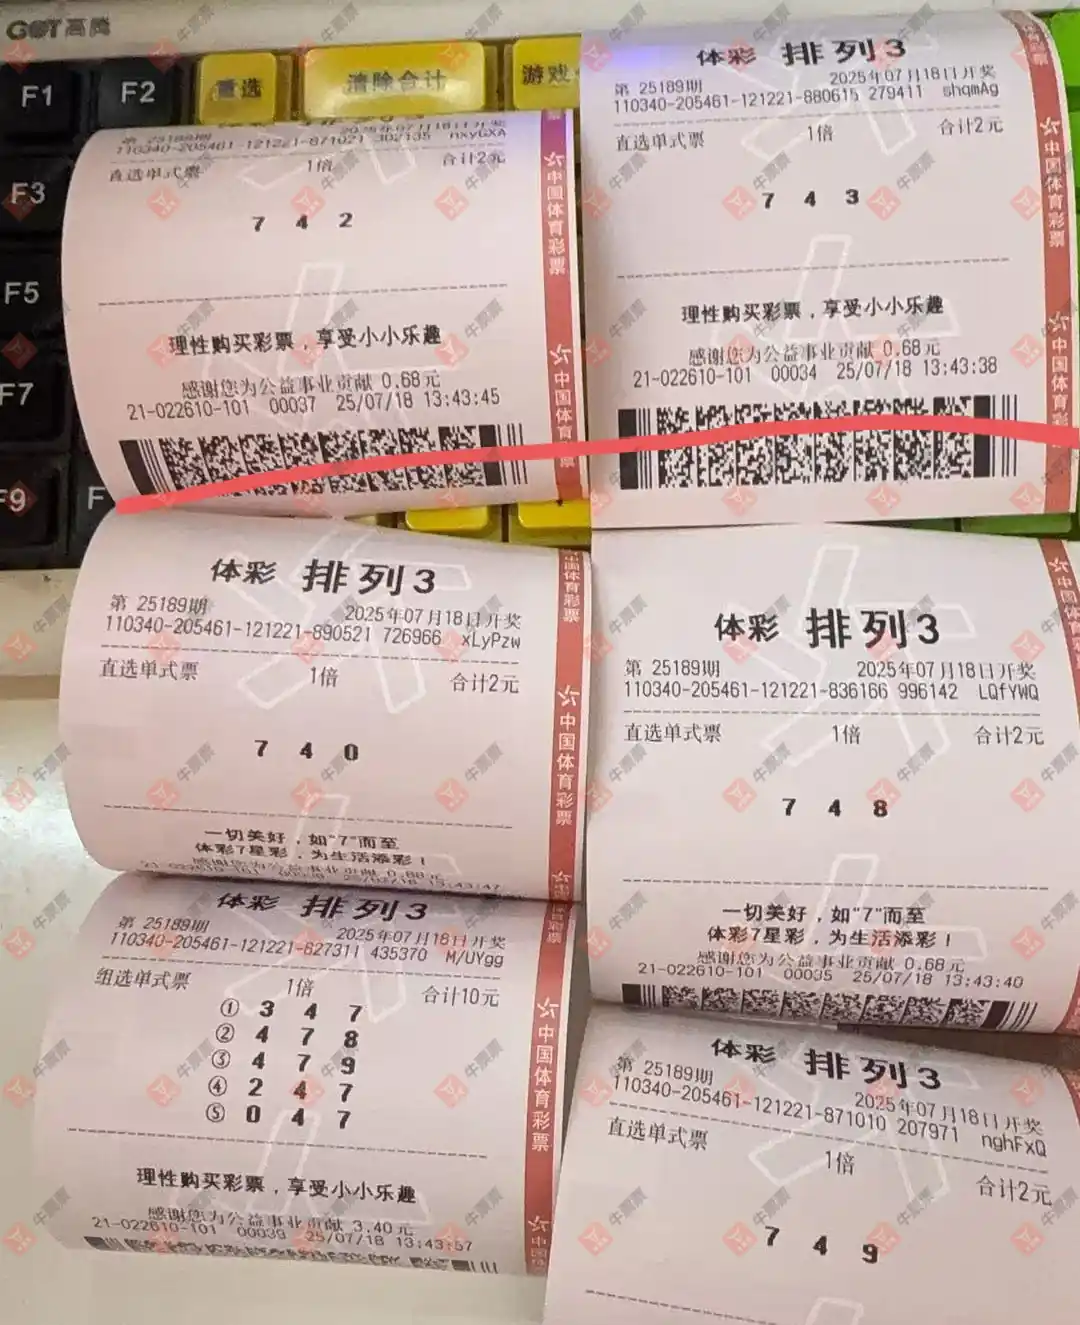 GOT高腾
F1
F2
重选
清除合计
游戏
F3
F5
F7
F9
F
第 25189期
2025年07月18日开奖
110340-205461-121221-871021 302135 nxyGXA
直选单式票 1倍 合计2元
7 4 2
理性购买彩票，享受小小乐趣
感谢您为公益事业贡献 0.68元
21-022610-101 00037 25/07/18 13:43:45
中国体育彩票
中国体育彩票
体彩 排列3
第 25189期 2025年07月18日开奖
110340-205461-121221-880615 279411 shqmAg
直选单式票 1倍 合计2元
7 4 3
理性购买彩票，享受小小乐趣
感谢您为公益事业贡献 0.68元
21-022610-101 00034 25/07/18 13:43:38
中国体育彩票
中国体育彩
体彩 排列3
第 25189期 2025年07月18日开奖
110340-205461-121221-890521 726966 xLyPzw
直选单式票 1倍 合计2元
7 4 0
一切美好，如"7"而至
体彩7星彩，为生活添彩！
感谢您为公益事业贡献 0.68元
21-022610-101 25/07/18 13:43:47
中国体育彩票
中国体育彩票
体彩 排列3
第 25189期 2025年07月18日开奖
110340-205461-121221-836166 996142 LQfYWQ
直选单式票 1倍 合计2元
7 4 8
一切美好，如"7"而至
体彩7星彩，为生活添彩！
感谢您为公益事业贡献 0.68元
21-022610-101 00035 25/07/18 13:43:40
体彩 排列3
第 25189期 2025年07月18日开奖
110340-205461-121221-627311 435370 M/UYgg
组选单式票 1倍 合计10元
① 3 4 7
② 4 7 8
③ 4 7 9
④ 2 4 7
⑤ 0 4 7
理性购买彩票，享受小小乐趣
感谢您为公益事业贡献 3.40元
21-022610-101 00039 25/07/18 13:43:57
中国体育彩票
体彩 排列3
第 25189期 2025年07月18日开奖
110340-205461-121221-871010 207971 nghFxQ
直选单式票 1倍 合计2元
7 4 9
牛票票